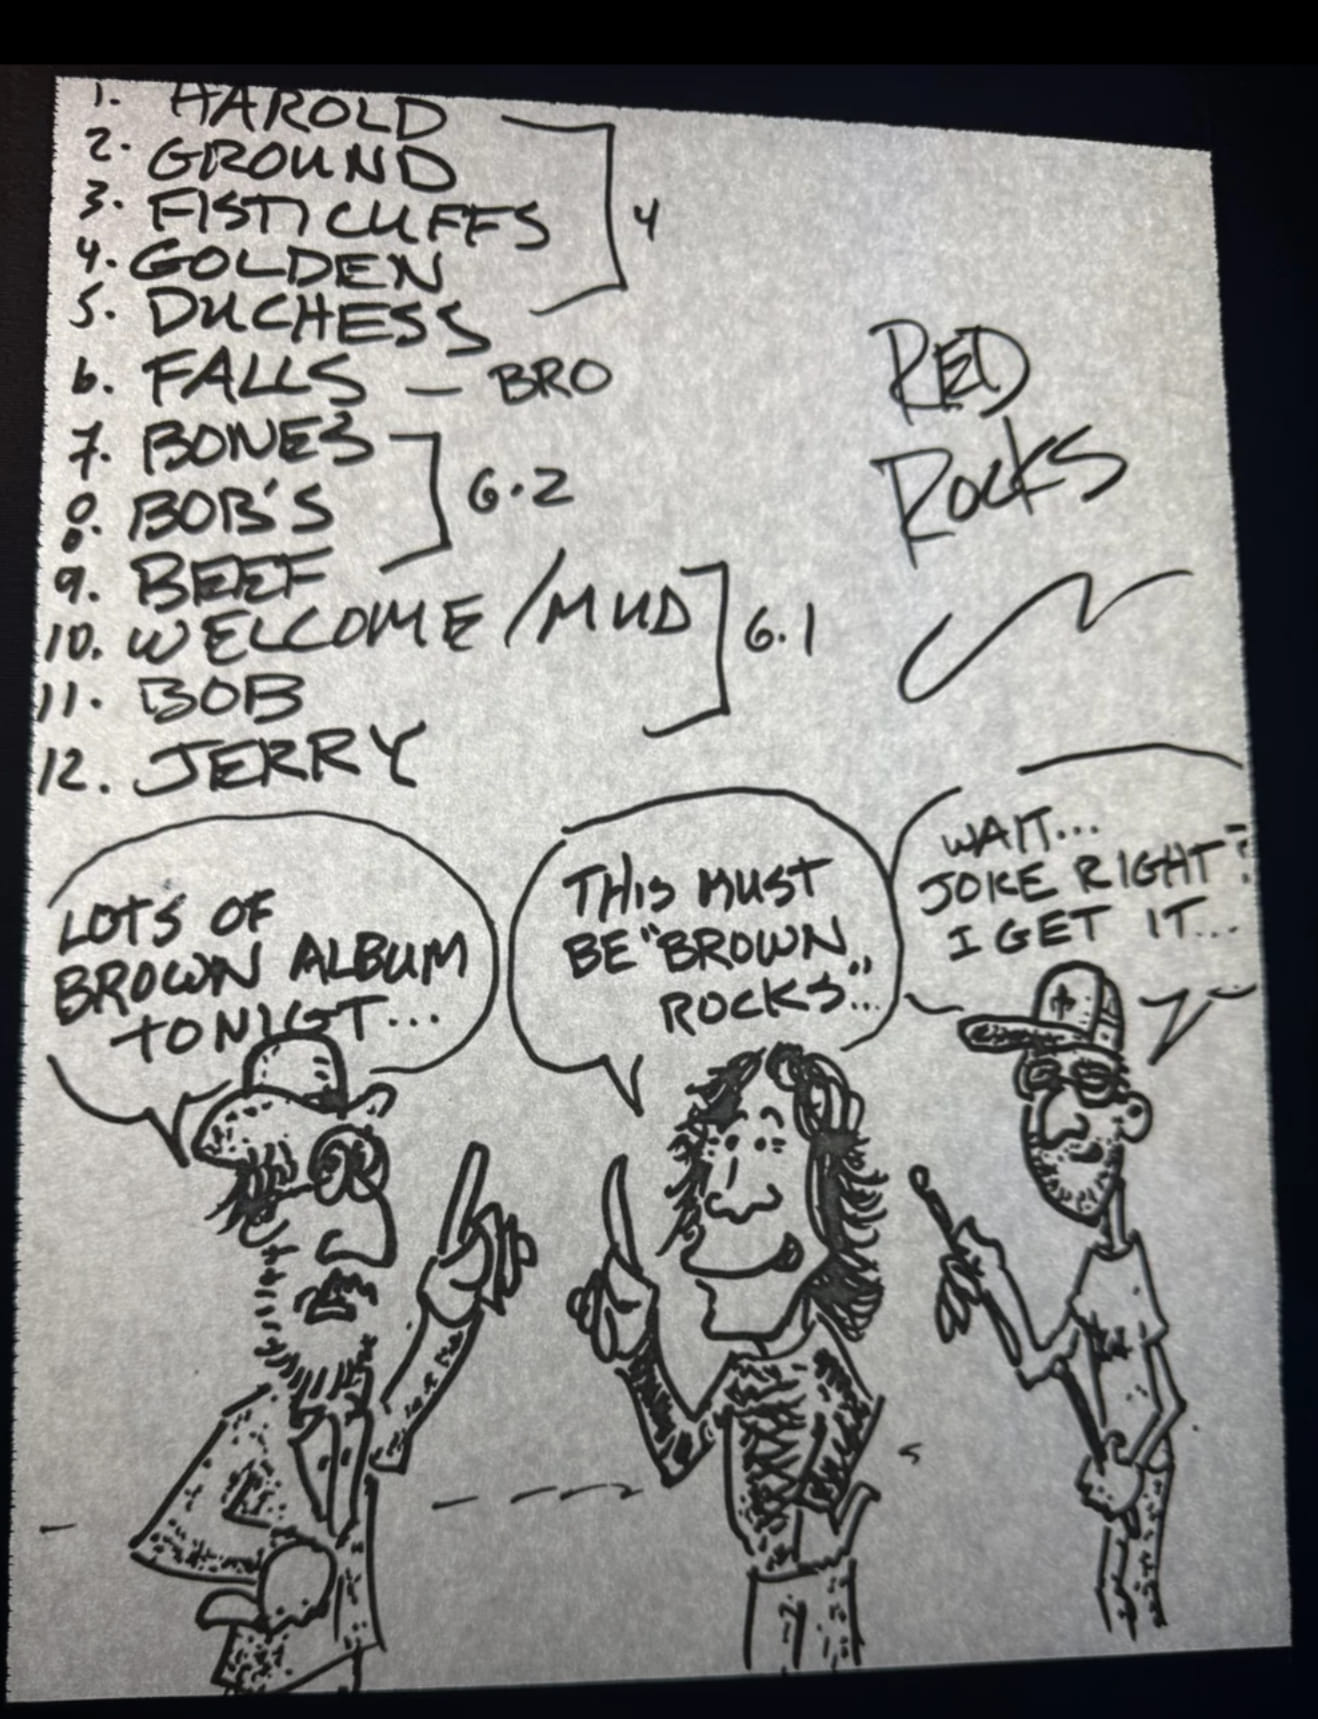 1. HAROLD
2. GROUND
3. FISTICUFFS
4. GOLDEN
5. DUCHESS
4
6. FALLS — BRO
7. BONES
8. BOB'S
9. BEEF
6.2
10. WELCOME / MUD
11. BOB
12. JERRY
6.1
RED
ROCKS
LOTS OF
BROWN ALBUM
TONIGT...
THIS MUST
BE "BROWN
ROCKS"...
WAIT...
JOKE RIGHT?
I GET IT...